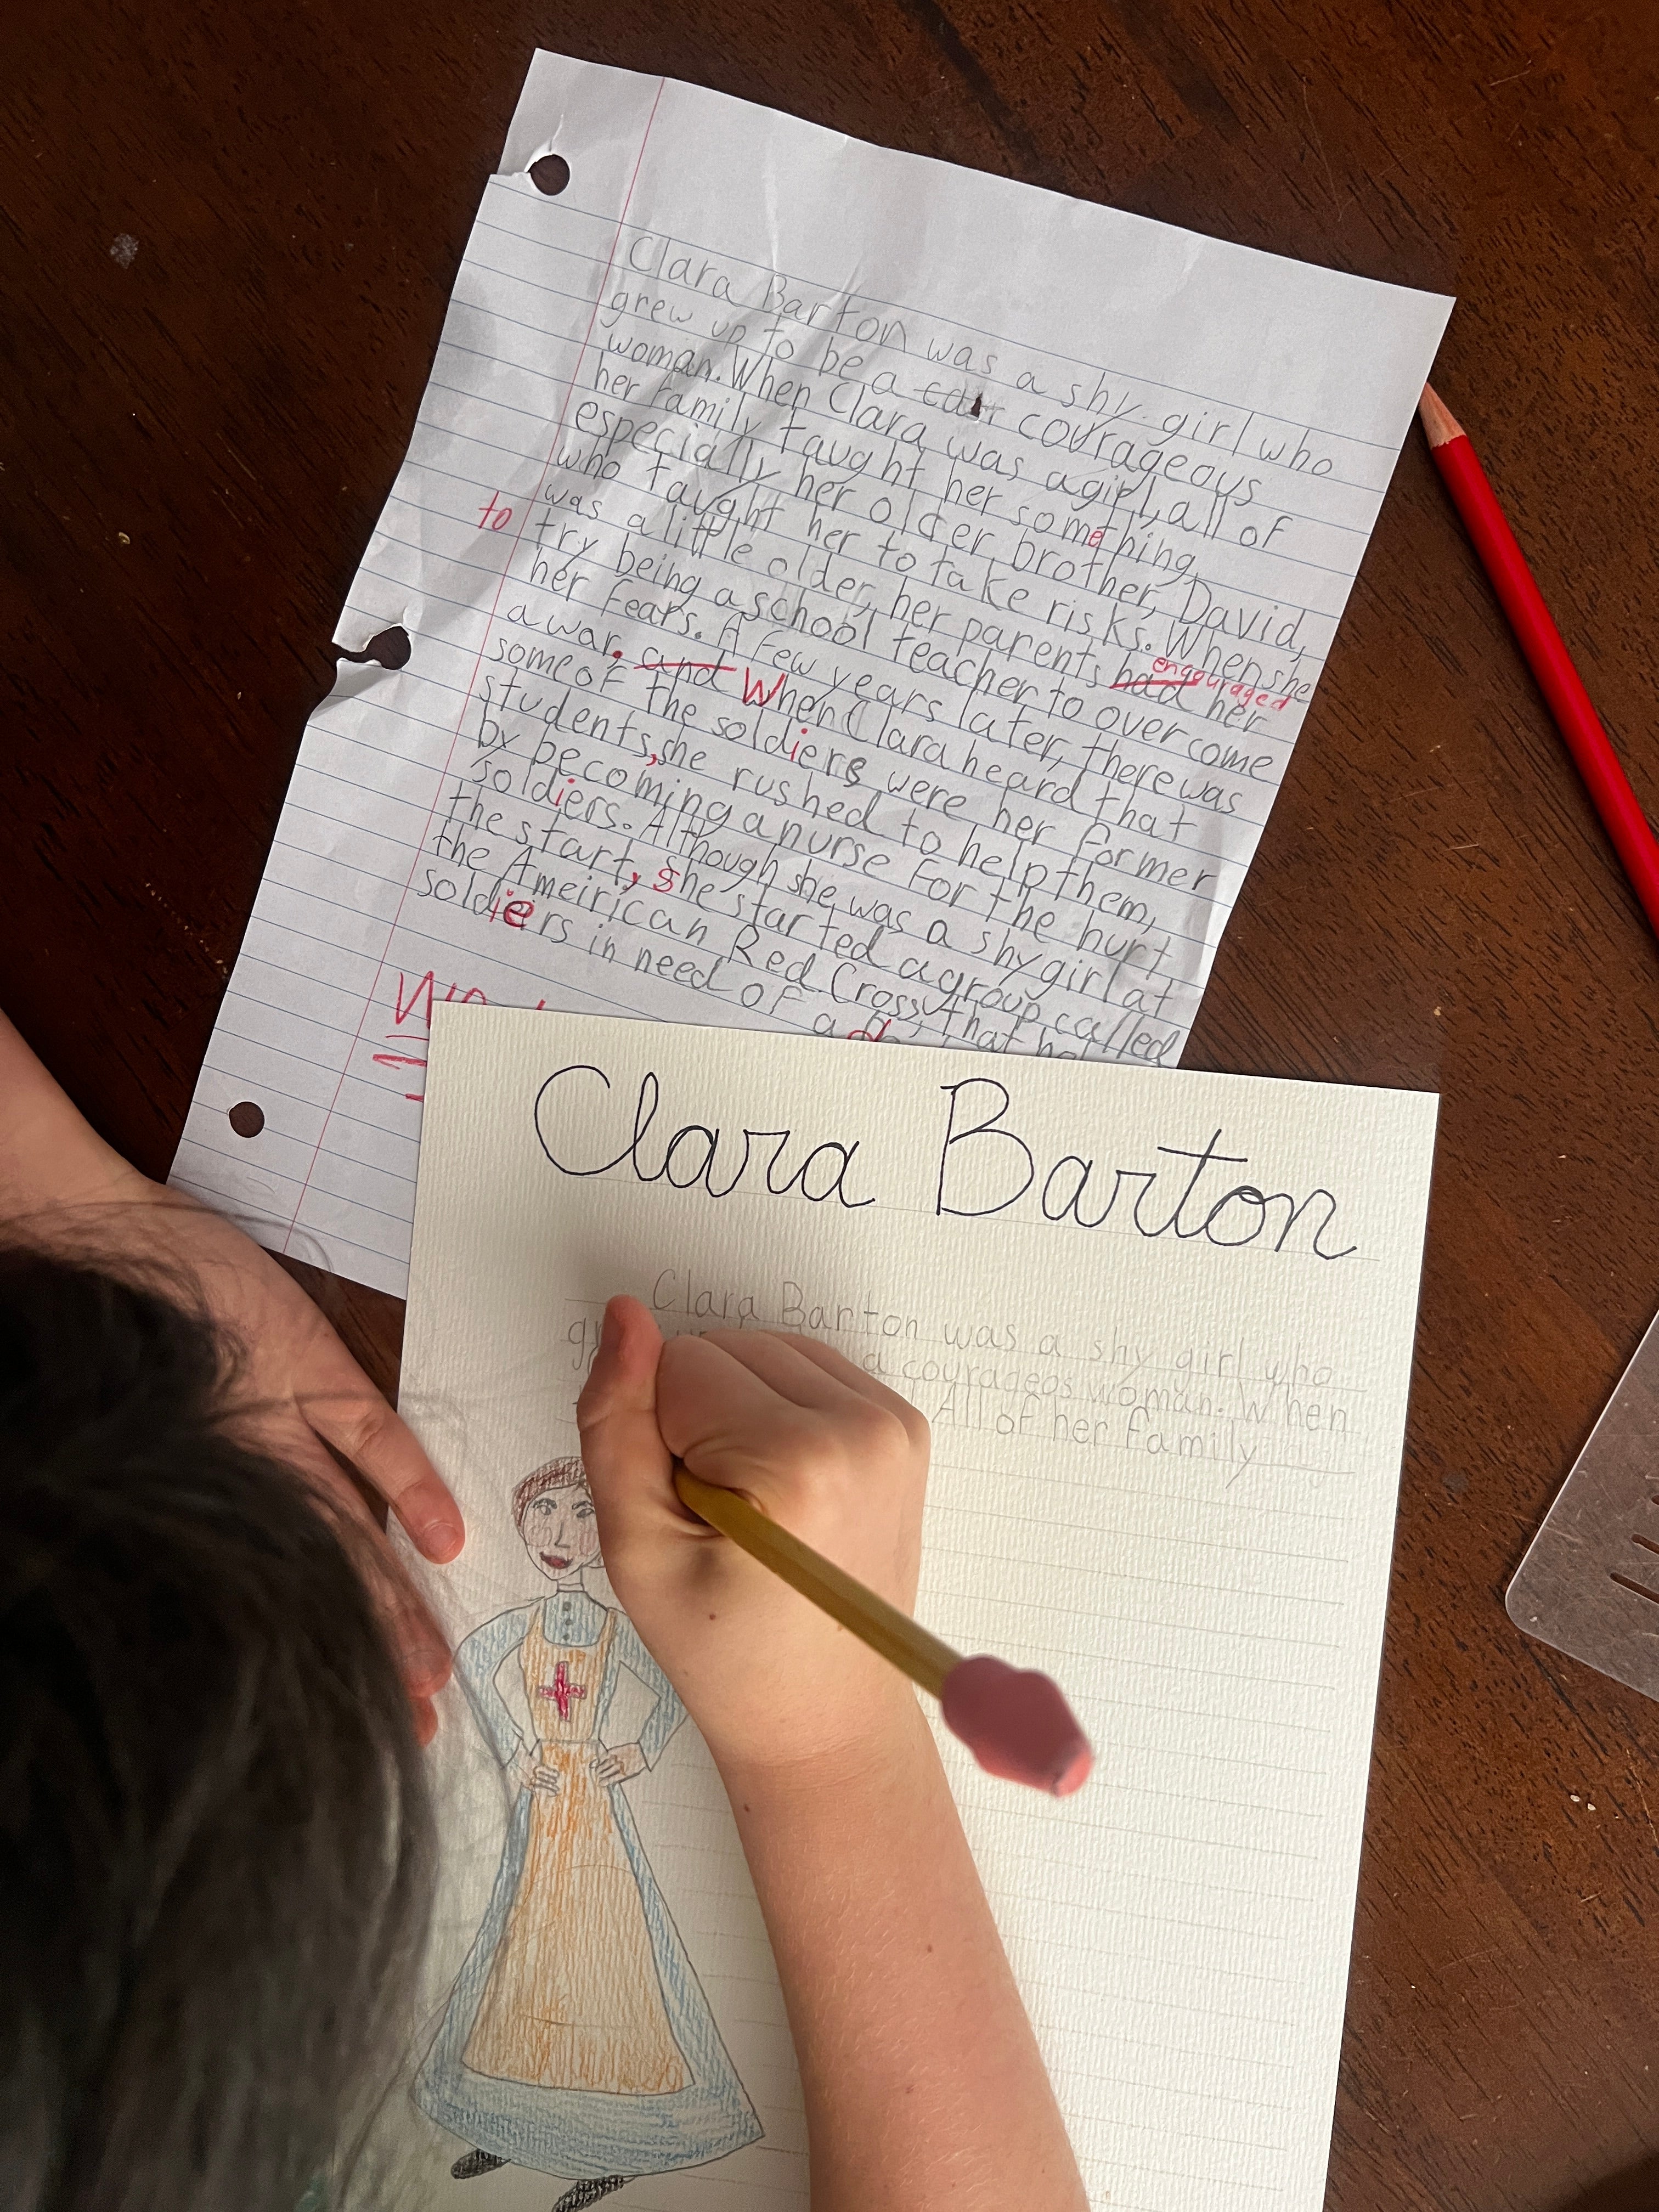 Clara Barton was a shy girl who
grew up to be a courageous
woman. When Clara was a girl, all of
her family taught her something,
especially her older brother, David,
who taught her to take risks. When she
was a little older, her parents had encouraged her
to try being a school teacher to overcome
her fears. A few years later, there was
a war. and When Clara heard that
some of the soldiers were her former
students, she rushed to help them,
by becoming a nurse for the hurt
soldiers. Although she was a shy girl at
the start, she started a group called
the Ameirican Red Cross, that
soldiers in need of
Clara Barton
Clara Barton was a shy girl who
a courageos woman. When
All of her family